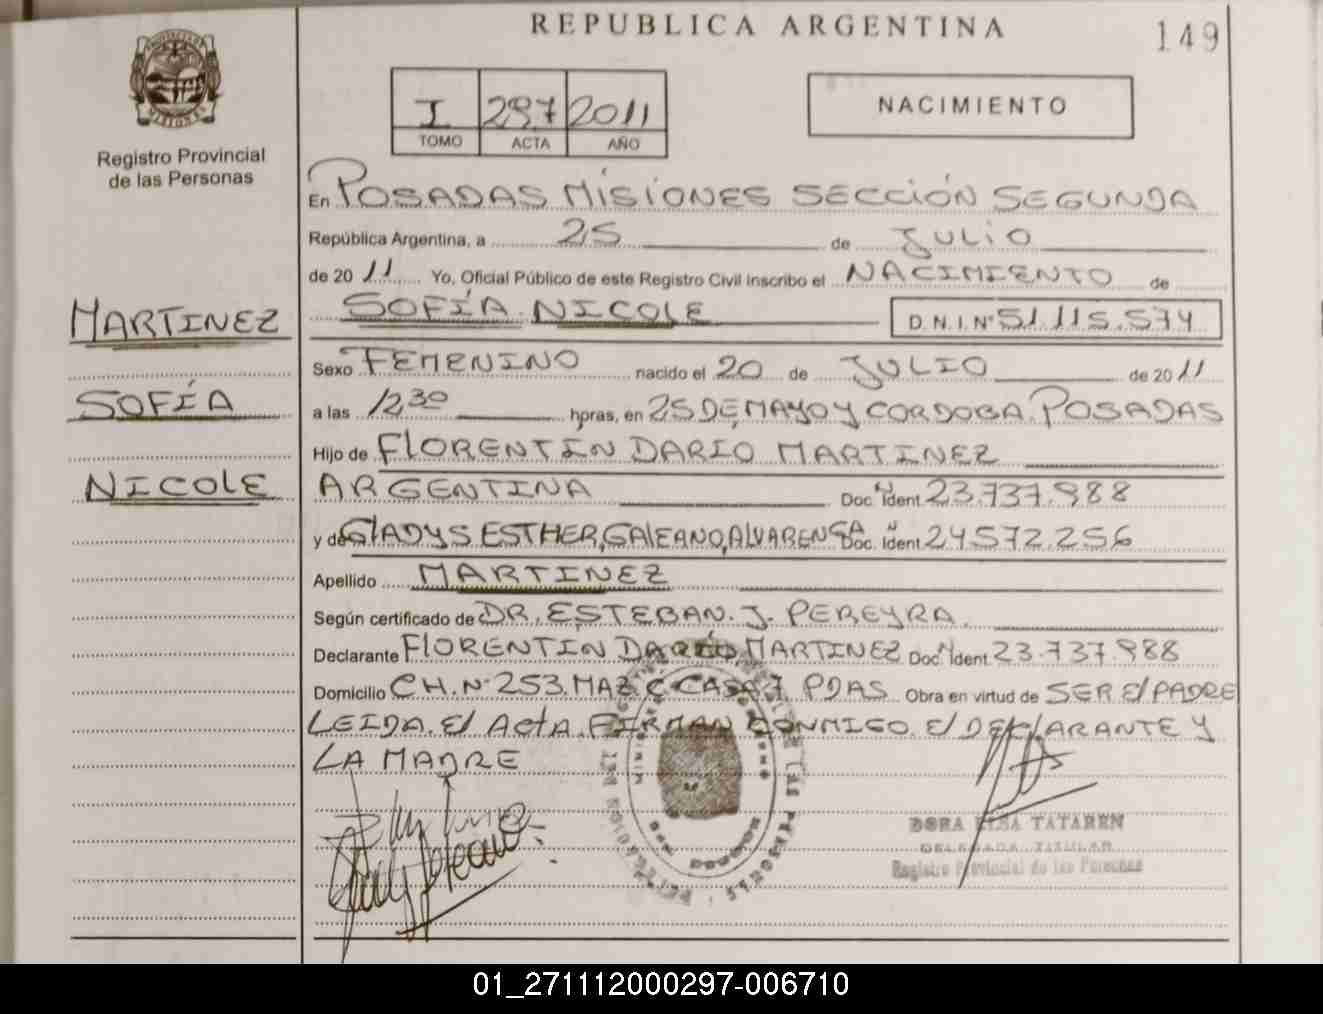 REPUBLICA ARGENTINA
149
MISIONES
Registro Provincial
de las Personas
I 297 2011
TOMO ACTA AÑO
NACIMIENTO
En POSADAS MISIONES SECCIÓN SEGUNDA
República Argentina, a 25 de JULIO
de 20 11 Yo, Oficial Público de este Registro Civil Inscribo el NACIMIENTO de
SOFÍA NICOLE D.N.I. Nº 51.115.574
MARTINEZ
SOFÍA
NICOLE
Sexo FEMENINO nacido el 20 de JULIO de 20 11
a las 12 30 horas, en 25 DE MAYO Y CORDOBA. POSADAS
Hijo de FLORENTIN DARIO MARTINEZ
ARGENTINA Doc. Ident. 23.737.988
y de GLADYS ESTHER, GALEANO, ALVARENGA Doc. Ident. 24572256
Apellido MARTINEZ
Según certificado de DR. ESTEBAN. J. PEREYRA.
Declarante FLORENTIN DARÍO MARTINEZ Doc. Ident. 23.737.988
Domicilio CH. Nº 253. MAZ C CASA 7 PDAS Obra en virtud de SER El PADRE
LEIDA. El ActA. FIRMAN CONMIGO. El DEClARANTE Y
LA MADRE
DORA ELSA TATAREN
DELEGADA TITULAR
Registro Provincial de las Personas
01_271112000297-006710